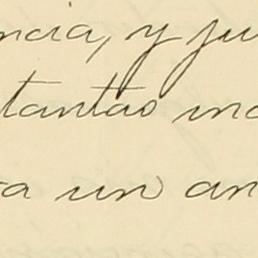 ncia, y ju
tantas ino
ra un an